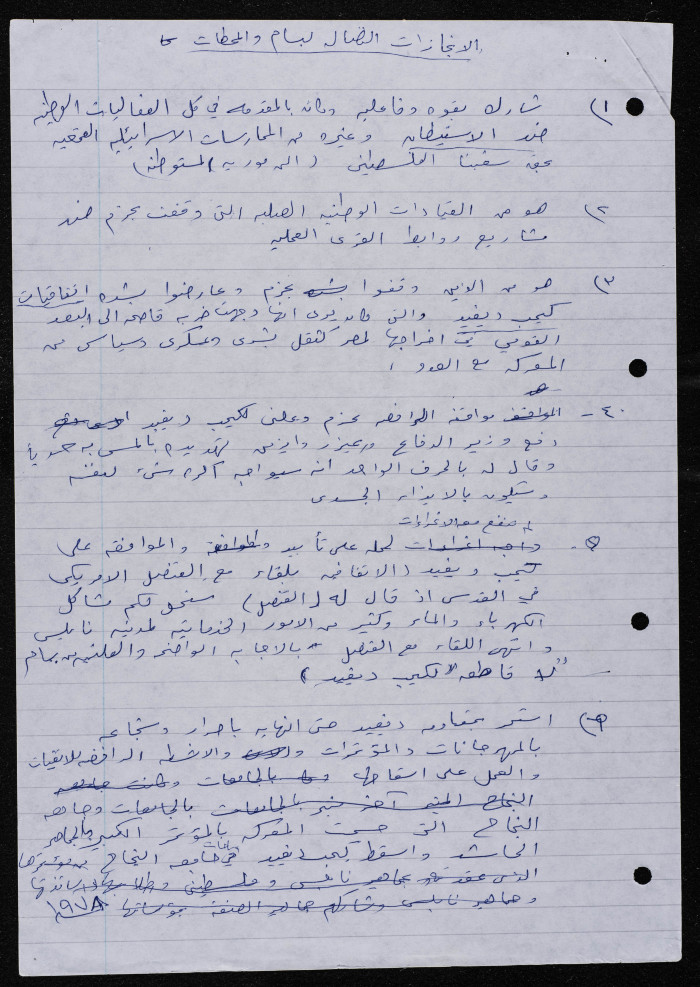 الانجازات النضال لبسام والمحطات
١) شارك بقوه وفاعليه وكان بالمقدمه في كل الفعاليات الوطنيه
ضد الاستيطان وغيره من الممارسات الاسرائيليه القمعيه
بحق شعبنا الفلسطيني (الن موريه المستوطنة)
٢) هو من القيادات الوطنيه الصلبه التي وقفت بحزم ضد
مشاريع روابط القرى العميله
٣) هو من الذين وقفوا بشده بحزم وعارضوا بشده اتفاقيات
كيمب ديفيد والتي كان يرى انها وجهت ضربه قاصمه الى البعد
القومي في اخراجها لمصر كثقل بشري وعسكري وسياسي من
المعركه مع العدو
٤- مواقفه الرافضه بحزم وعلنى لكيمب ديفيد
دفع وزير الدفاع عيزر وايزمن لتهديده بالمس به جسدياً
وقال له بالحرف الواحد انه سيواجه اكره شيء لنفسه
وستكون بالايذاء الجسدي
لم تنفع معه الاغراءات
٥- واجه اغراءات لحمله على تأييد والموافقه على
كيمب ديفيد (الاتفاقيه بلقاء مع القنصل الامريكي
في القدس اذ قال له (القنصل) سنحل لكم مشاكل
الكهرباء والماء وكثير من الامور الخدماتيه لمدينة نابلس
وانتهى اللقاء مع القنصل بالاجابه الواضحه والعلنيه من بسام
"لا قاطعه لكيمب ديفيد"
٦) استمر بمقاومه ديفيد حتى النهايه باصرار وشجاعه
بالمهرجانات والمؤتمرات والانشطه الرافضه للاتفيات
والعمل على اسقاطها بالجامعات وكانت جامعه
النجاح المنبر آخر منبر بالجامعات بالجامعات وجامعه
النجاح التي حسمت المعركه بالمؤتمر الكبير والجماهير
الحاشد واسقط كيمب ديفيد في جامعه النجاح بمؤتمرها
الذي عقد بجماهير نابلس وفلسطين وطلابها واساتذتها
وجماهير نابلس وشاركهم جماهير الضفة بمؤسساتها ١٩٧٨